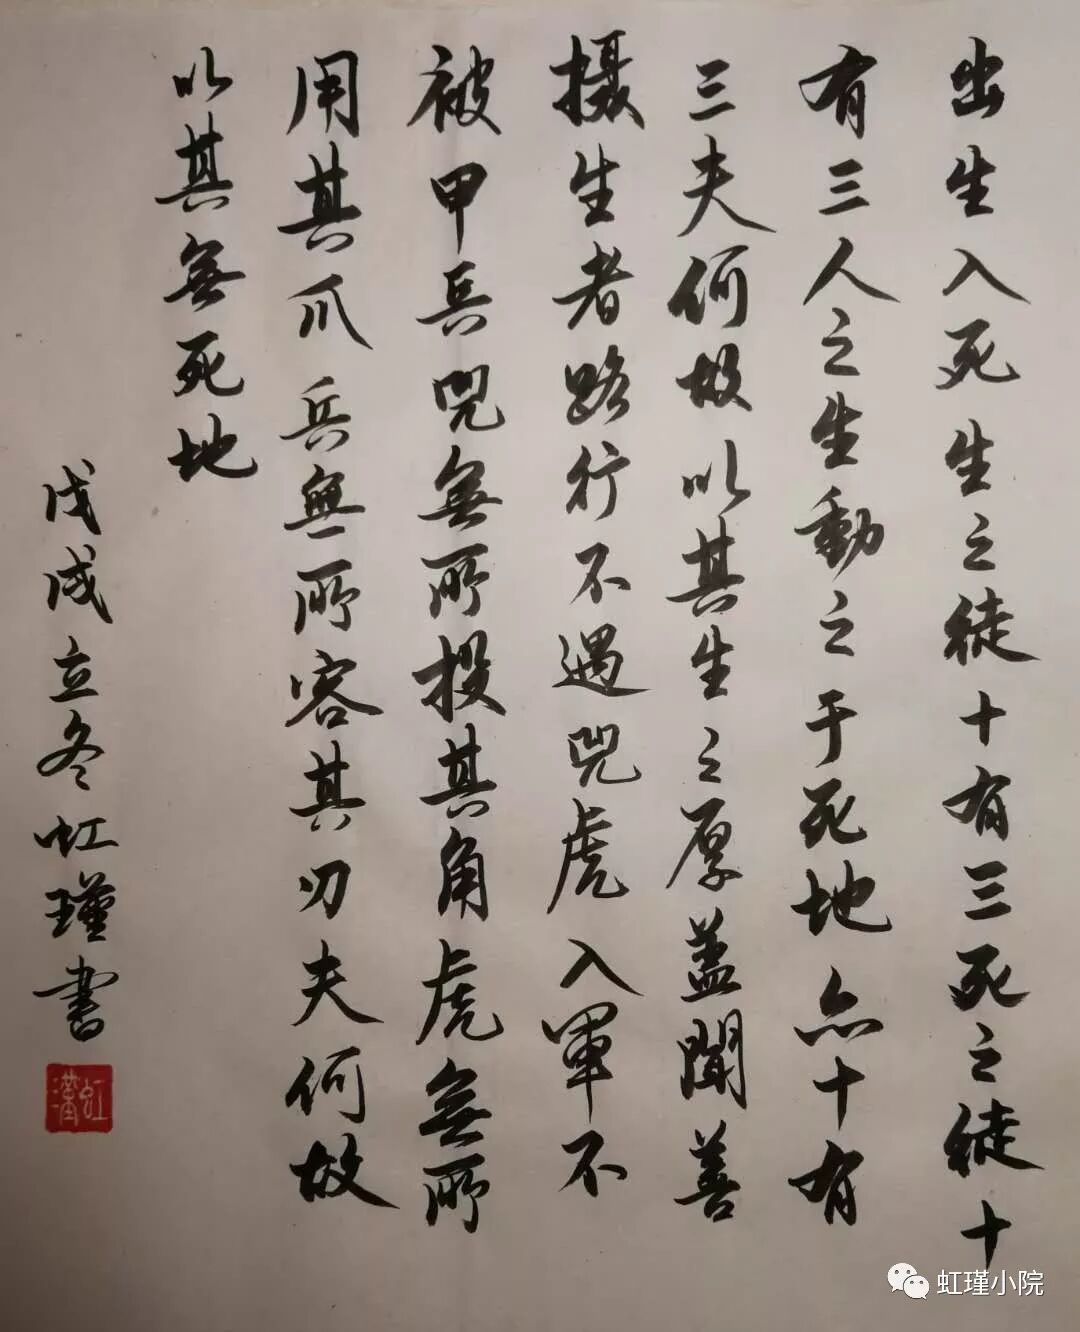 出生入死生之徒十有三死之徒十
有三人之生動之于死地亦十有
三夫何故以其生之厚盖聞善
摄生者路行不遇兕虎入軍不
被甲兵兕無所投其角虎無所
用其爪兵無所容其刃夫何故
以其無死地
戊戌立冬虹瑾書
虹瑾
虹瑾小院